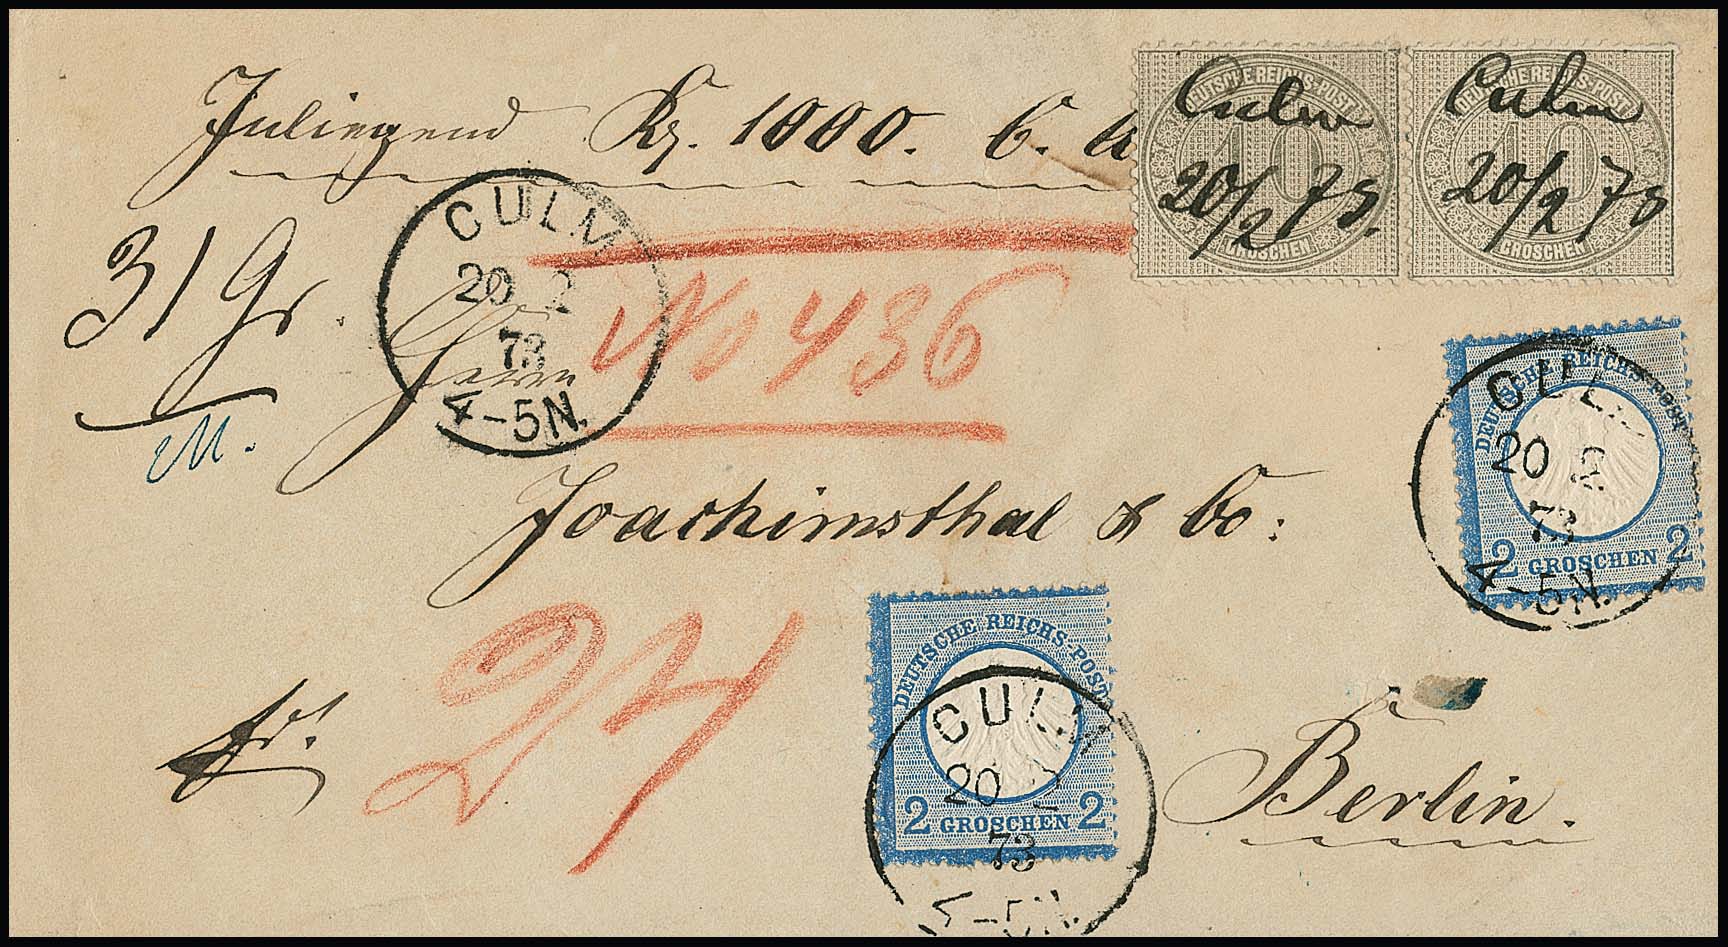 Inliegend Rg. 1000. C. A
DEUTSCHE REICHS-POST
10
GROSCHEN
Culm
20/2 73.
DEUTSCHE REICHS-POST
10
GROSCHEN
Culm
20/2 73
31 Gr.
M.
CULM
20 2
73
4-5N.
Herrn
No 436
DEUTSCHE REICHS-POST
2 GROSCHEN 2
CULM
20 2
73
4-5N.
Joachimsthal & Co:
DEUTSCHE REICHS-POST
2 GROSCHEN 2
CULM
20 2
73
4-5N.
fr.
24
Berlin.